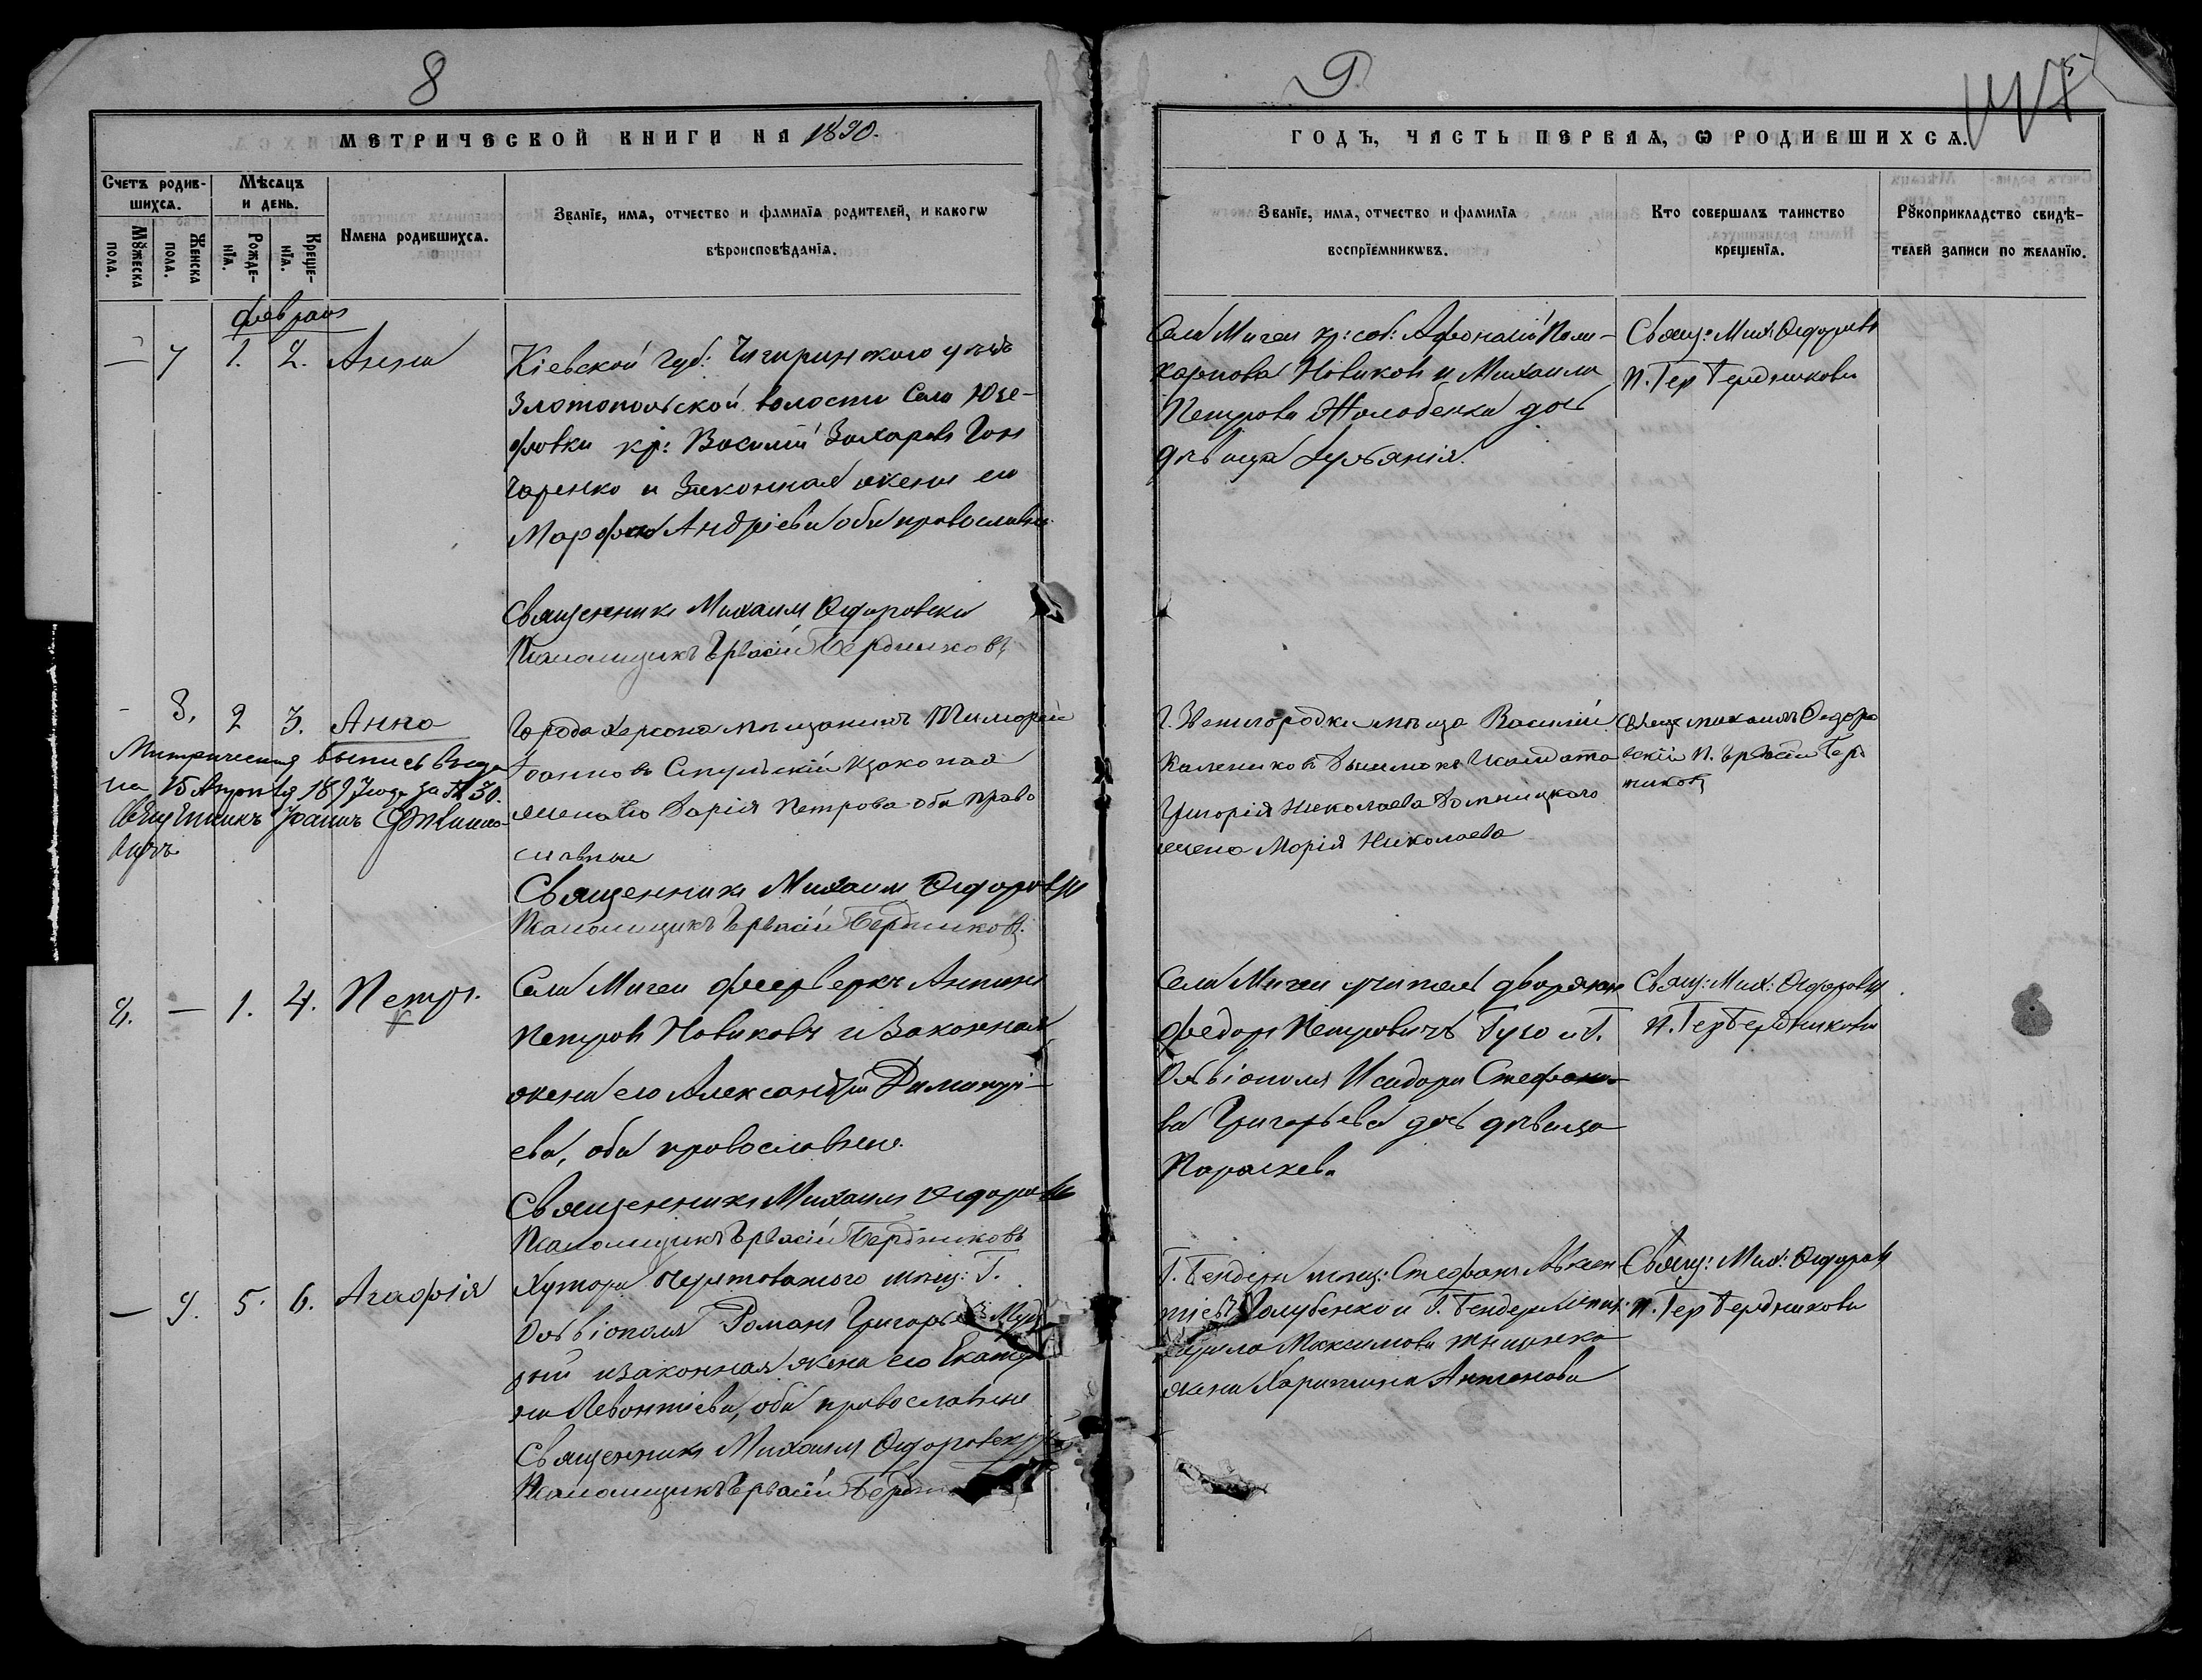 8
МЕТРИЧЕСКОЙ КНИГИ НА 1890.
Счетъ родив-
шихся.
Мѣсяцъ
и день.
Мꙋжеска
пола.
Женска
пола.
Рожде-
нїя.
Креще-
нїя.
Имена родившихся.
Званїе, имя, отчество и фамилїя родителей, и какогѡ
вѣроисповѣданїя.
февраль
— 7 1. 2. Анна
Кіевской губ: Чигиринского уѣзда
Златопольской волости Села Юзе-
фовки кр: Василій Захаровъ Гон
чаренко и законная жена его
Марфа Андріева оба православны
Священникъ Михаилъ Ѳедоровскій
Псаломщикъ Ервасій Бердниковъ
- 8. 2 3. Анна
Города Херсона мѣщанинъ Тимофей
Іоанновъ и законая
жена его Дарія Петрова оба право
славные
Метрическая выпись выдана
на 15 Апрѣля 1897 года за № 30.
Священникъ Іоаннъ
вичъ
Священникъ Михаилъ Ѳедоровскій
Псаломщикъ Ервасій Бердниковъ.
8. — 1. 4. Петръ.
Села Мигеи фейерверкъ Антонъ
Петровъ Новиковъ и законная
жена его Александра Димитрі-
ева, оба православные.
Священникъ Михаилъ Ѳедоровскій
Псаломщикъ Ервасій Бердниковъ
— 9. 5. 6. Агафія
Хутора мѣщ: Г.
Ольвіополя Романъ Григорьевъ Муд
рый и законная жена его Екатери
на Левонтіева, оба православные
Священникъ Михаилъ Ѳедоровскій
Псаломщикъ Ервасій Бердниковъ
9
ГОДЪ, ЧАСТЬ ПЕРВАЯ, Ѡ РОДИВШИХСЯ.
Званїе, имя, отчество и фамилїя
воспрїемникѡвъ.
Кто совершалъ таинство
крещенїя.
Рꙋкоприкладство свидѣ-
телей записи по желанїю.
Села Мигеи кр: соб: Афонасій Поли-
карповъ Новиковъ и Михаила
Петрова Жалобенка дочь
дѣвица Ульянія.
Свящ: Мих: Ѳедоровскій
П. Гер Бердниковъ
Г. Звенигородки мѣща Василій
Калениковъ
Григорія Николаева
жена Марія Николаева
Свящ михаилъ Ѳедоро
вскій П. Ервасій Берд
никовъ
Села Мигеи учитель дворянинъ
Федоръ Петровичъ Гузо и Г.
Ольвіополя Исидора Стефано-
ва Григорьева дочь дѣвица
Параскева
Свящ: Мих: Ѳедоровскій
П. Гер Бердниковъ
Г. Бендеръ мѣщ: Стефанъ Авксен
тіевъ Голубенко и Г. Бендеръ Мѣщ:
Кирила Максимова
жена Харитина Антонова
Свящ: Мих: Ѳедоровскій
П. Гер Бердниковъ